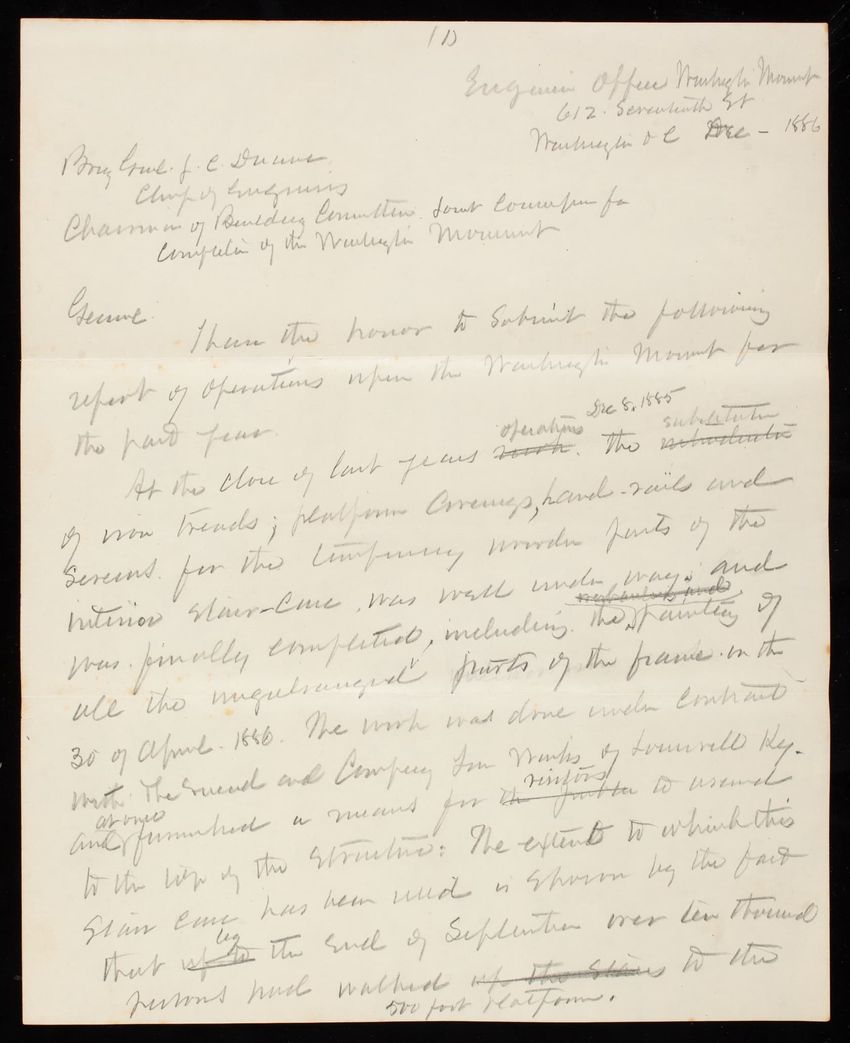 (1)
Engineer Office Washington Monument
612. Seventeenth St
Washington D C Dec – 1886
Brig Genl. J. C. Duane
Chief of Engineers
Chairman of Building Committee. Joint Commission for
Completion of the Washington Monument
General
I have the honor to submit the following
report of operations upon the Washington Monument for
the past year.
operations Dec 8. 1885 substitution
At the close of last years work. The
of iron treads; platform coverings, hand-rails and
screens. for the temporary wooden parts of the
interior stair-case, was well under way; and
was finally completed, including the painting of
all the ungalvanized parts of the frame. on the
30 of April. 1886. The work was done under contract
with The Snead and Company Iron Works of Louisville Ky.
at once visitors
and furnished a means for the public to ascend
to the top of the structure: The extent to which this
stair case has been used is shown by the fact
by
that up to the end of September over ten thousand
persons had walked up the stairs to the
500 foot platform.